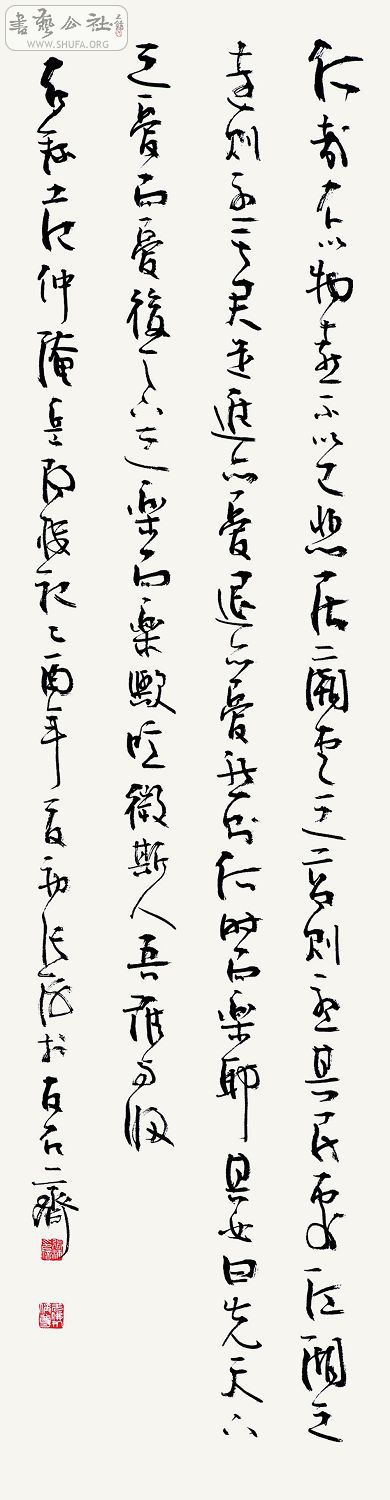 書藝公社
WWW.SHUFA.ORG
何哉不以物喜不以己悲居廟堂之高則憂其民處江湖之
遠則憂其君是進亦憂退亦憂然則何時而樂耶其必曰先天下
之憂而憂後天下之樂而樂歟噫微斯人吾誰與歸
范仲淹岳陽樓記乙酉年夏初於百石齋